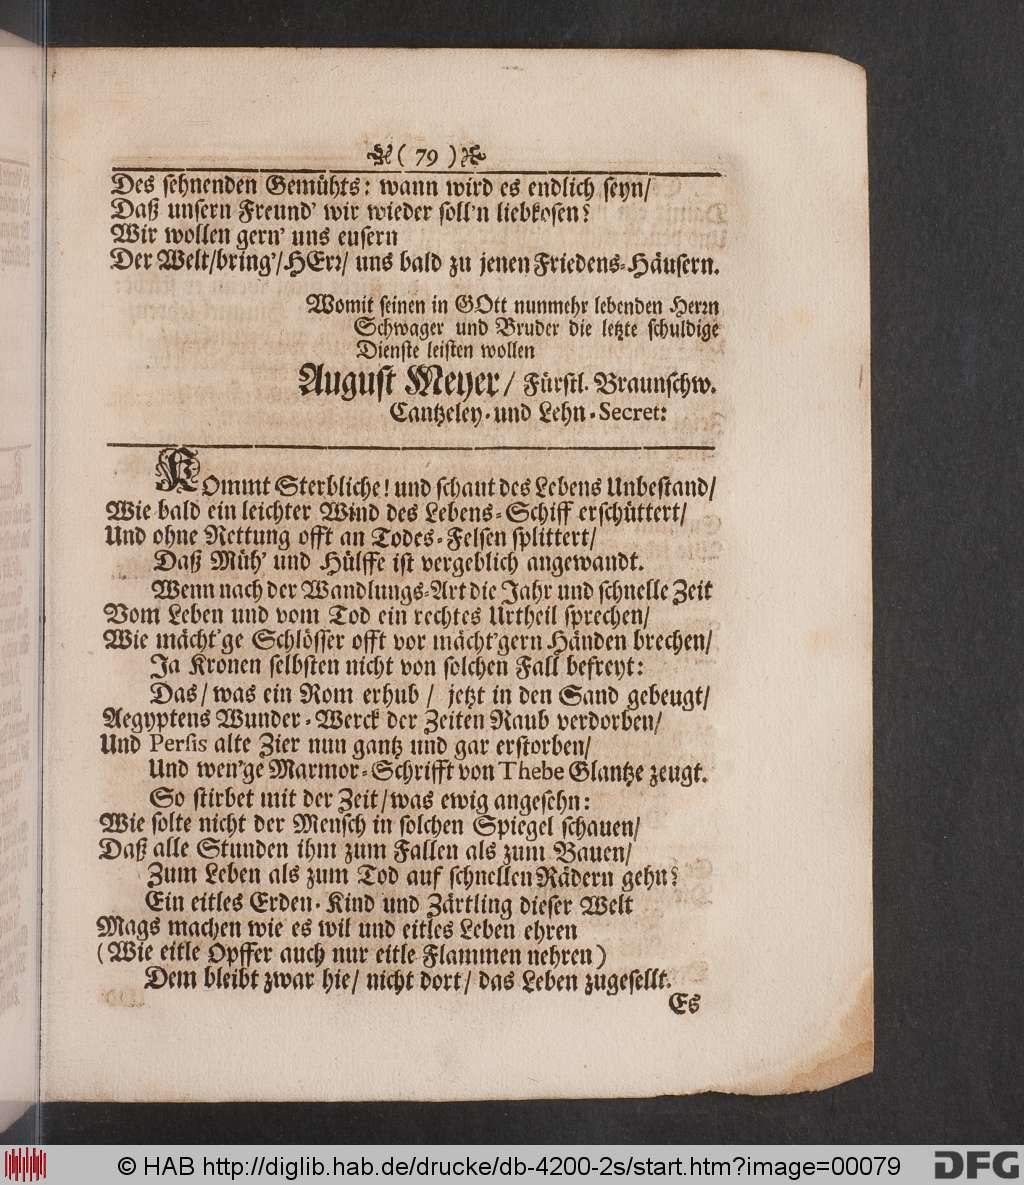 ( 79 )
Des sehnenden Gemühts: wann wird es endlich seyn/
Daß unsern Freund' wir wieder soll'n liebkosen?
Wir wollen gern' uns eusern
Der Welt/bring'/HErr/ uns bald zu jenen Friedens-Häusern.
Womit seinen in GOtt nunmehr lebenden Herrn
Schwager und Bruder die letzte schuldige
Dienste leisten wollen
August Meyer/ Fürstl. Braunschw.
Cantzeley- und Lehn-Secret:
KOmmt Sterbliche! und schaut des Lebens Unbestand/
Wie bald ein leichter Wind des Lebens-Schiff erschüttert/
Und ohne Rettung offt an Todes-Felsen splittert/
Daß Müh' und Hülffe ist vergeblich angewandt.
Wenn nach der Wandlungs-Art die Jahr und schnelle Zeit
Vom Leben und vom Tod ein rechtes Urtheil sprechen/
Wie mächt'ge Schlösser offt vor mächt'gern Händen brechen/
Ja Kronen selbsten nicht von solchen Fall befreyt:
Das/ was ein Rom erhub/ jetzt in den Sand gebeugt/
Aegyptens Wunder-Werck der Zeiten Raub verdorben/
Und Persis alte Zier nun gantz und gar erstorben/
Und wen'ge Marmor-Schrifft von Thebe Glantze zeugt.
So stirbet mit der Zeit/was ewig angesehn:
Wie solte nicht der Mensch in solchen Spiegel schauen/
Daß alle Stunden ihm zum Fallen als zum Bauen/
Zum Leben als zum Tod auf schnellen Rädern gehn?
Ein eitles Erden-Kind und Zärtling dieser Welt
Mags machen wie es wil und eitles Leben ehren
(Wie eitle Opffer auch nur eitle Flammen nehren)
Dem bleibt zwar hie/ nicht dort/ das Leben zugesellt.
Es
© HAB http://diglib.hab.de/drucke/db-4200-2s/start.htm?image=00079
DFG